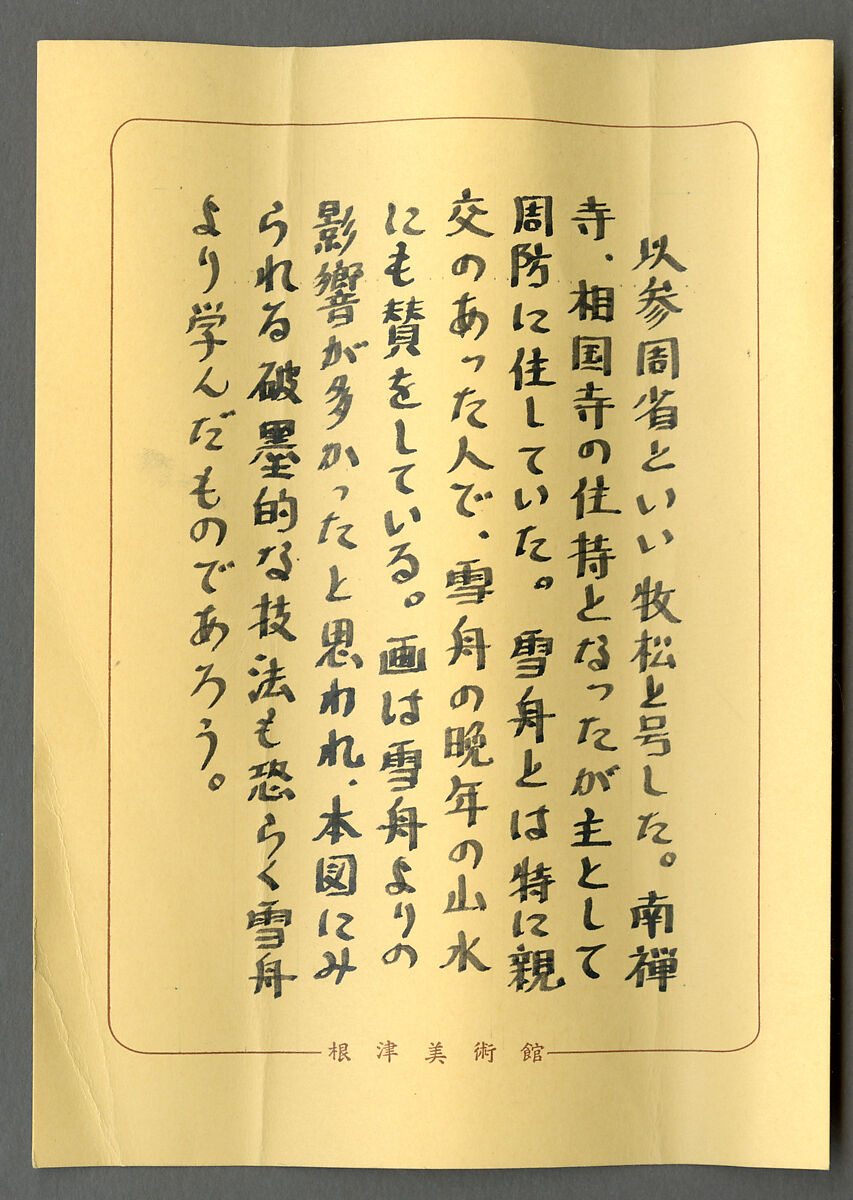 以参周省といい牧松と号した。南禅
寺、相国寺の住持となったが主として
周防に住していた。雪舟とは特に親
交のあった人で、雪舟の晩年の山水
にも賛をしている。画は雪舟よりの
影響が多かったと思われ、本図にみ
られる破墨的な技法も恐らく雪舟
より学んだものであろう。
根津美術館